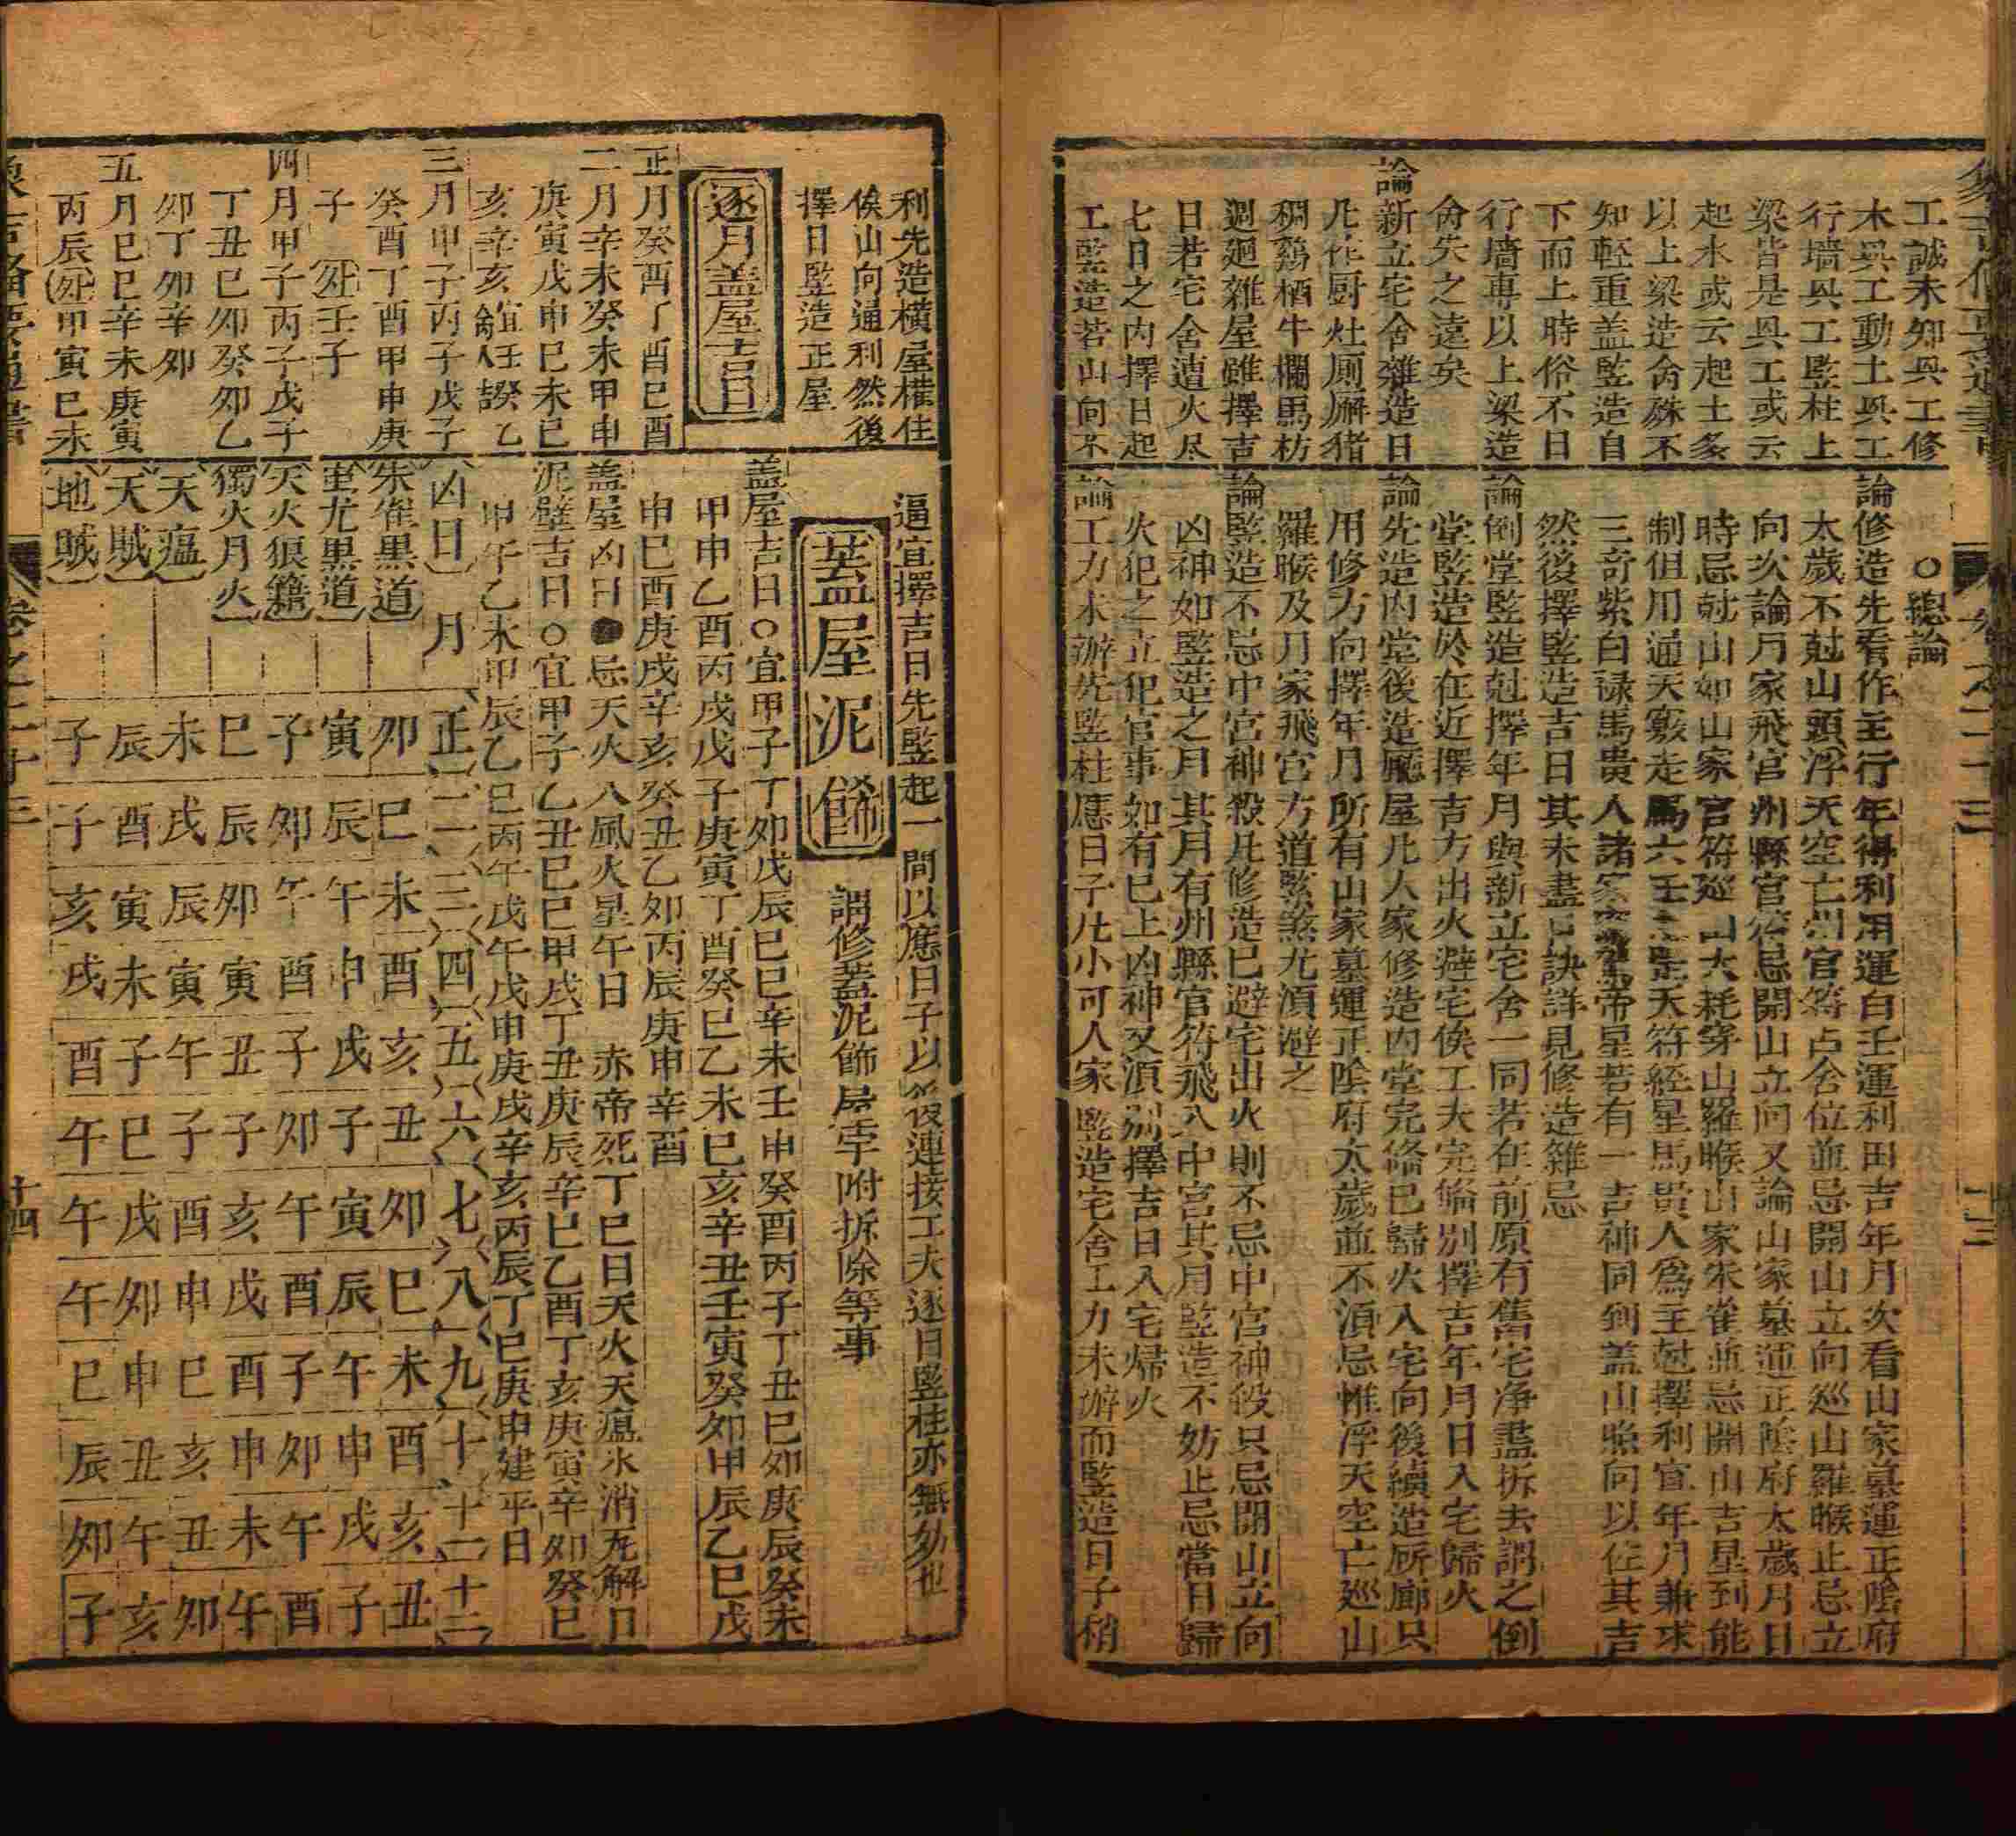 工誠未卯興工修
木興工動土興工
行墙興工竪柱上
梁皆是興工或云
起水或云起土多
以上梁造舍殊不
知輕重盖竪造自
下而上時俗不日
行墙專以上梁造
舍失之遠矣
論新立宅舍雜造日
凡作厨灶厠廨猪
稠鷄栖牛欄馬枋
週廻雜屋雖擇吉
日若宅舍遭火尽
七日之内擇日起
工竪造若山向不
○總論
論修造先看作主行年得利用運白壬運利田吉年月次看山家墓運正陰府
太歲不尅山頭浮天空亡州官符占舍位並忌開山立向巡山羅睺止忌立
向次論月家飛宮州縣官符忌開山立向又論山家墓運正陰府太歲月日
時忌尅山如山家官符巡山大耗穿山羅睺山家朱雀並忌開山吉星到能
制但用通天竅走馬六壬天符經星馬貴人爲主尅擇利宜年月兼求
三奇紫白禄馬貴人諸家帝星若有一吉神同到盖山照向以佐其吉
然後擇竪造吉日其未盡訣詳見修造雜忌
論倒堂竪造尅擇年月與新立宅舍一同若在前原有舊宅净盡拆去謂之倒
堂竪造於在近擇吉方出火避宅俟工夫完俻別擇吉年月日入宅歸火
論先造内堂後造廳屋凡人家修造内堂完俻已歸火入宅向後續造所廊只
用修方向擇年月所有山家墓運正陰府太歲並不湏忌惟浮天空亡巡山
羅睺及月家飛宮方道緊煞尤湏避之
論竪造不忌中宮神殺凡修造已避宅出火則不忌中宮神役只忌開山立向
凶神如竪造之月其月有州縣官符飛入中宮其月竪造不妨止忌當日歸
火犯之立犯官事如有已上凶神又湏别擇吉日入宅帰火
論工力未辦先竪柱應日子凡小可人家竪造宅舍工力未辦而竪造日子稍
利先造橫屋權住
俟山向通利然後
擇日竪造正屋
逐月盖屋吉日
正月癸酉丁酉巳酉
二月辛未癸未甲申
庚寅戊申巳未巳
亥辛亥
三月甲子丙子戊子
癸酉丁酉甲申庚
子壬子
四月甲子丙子戊子
丁丑巳卯癸卯乙
卯丁卯辛卯
五月巳巳辛未庚寅
丙辰甲寅巳未
逼宜擇吉日先竪起一間以應日子以後連接工夫逐日竪柱亦無妨也
葢屋泥飾
謂修葢泥飾屋宇附拆除等事
盖屋吉日○宜甲子丁卯戊辰巳巳辛未壬申癸酉丙子丁丑巳卯庚辰癸未
甲申乙酉丙戌戊子庚寅丁酉癸巳乙未巳亥辛丑壬寅癸卯甲辰乙巳戊
申巳酉庚戌辛亥癸丑乙卯丙辰庚申辛酉
盖屋凶日●忌天火八風火星午日赤帝死丁巳日天火天瘟氷消瓦解日
泥壁吉日○宜甲子乙丑巳巳甲戌丁丑庚辰辛巳乙酉丁亥庚寅辛卯癸巳
甲午乙未甲辰乙巳丙午戊午戊申庚戌辛亥丙辰丁巳庚申建平日
凶日 月 正 二 三 四 五 六 七 八 九 十 十一 十二
朱雀黒道 卯 巳 未 酉 亥 丑 卯 巳 未 酉 亥 丑
蚩尤黒道 寅 辰 午 申 戌 子 寅 辰 午 申 戌 子
天火狼籍 子 卯 午 酉 子 卯 午 酉 子 卯 午 酉
獨火月火 巳 辰 卯 寅 丑 子 亥 戌 酉 申 未 午
天瘟 未 戌 辰 寅 午 子 酉 申 巳 亥 丑 卯
天賊 辰 酉 寅 未 子 巳 戌 卯 申 丑 午 亥
地賊 子 子 亥 戌 酉 午 午 午 巳 辰 卯 子
十四